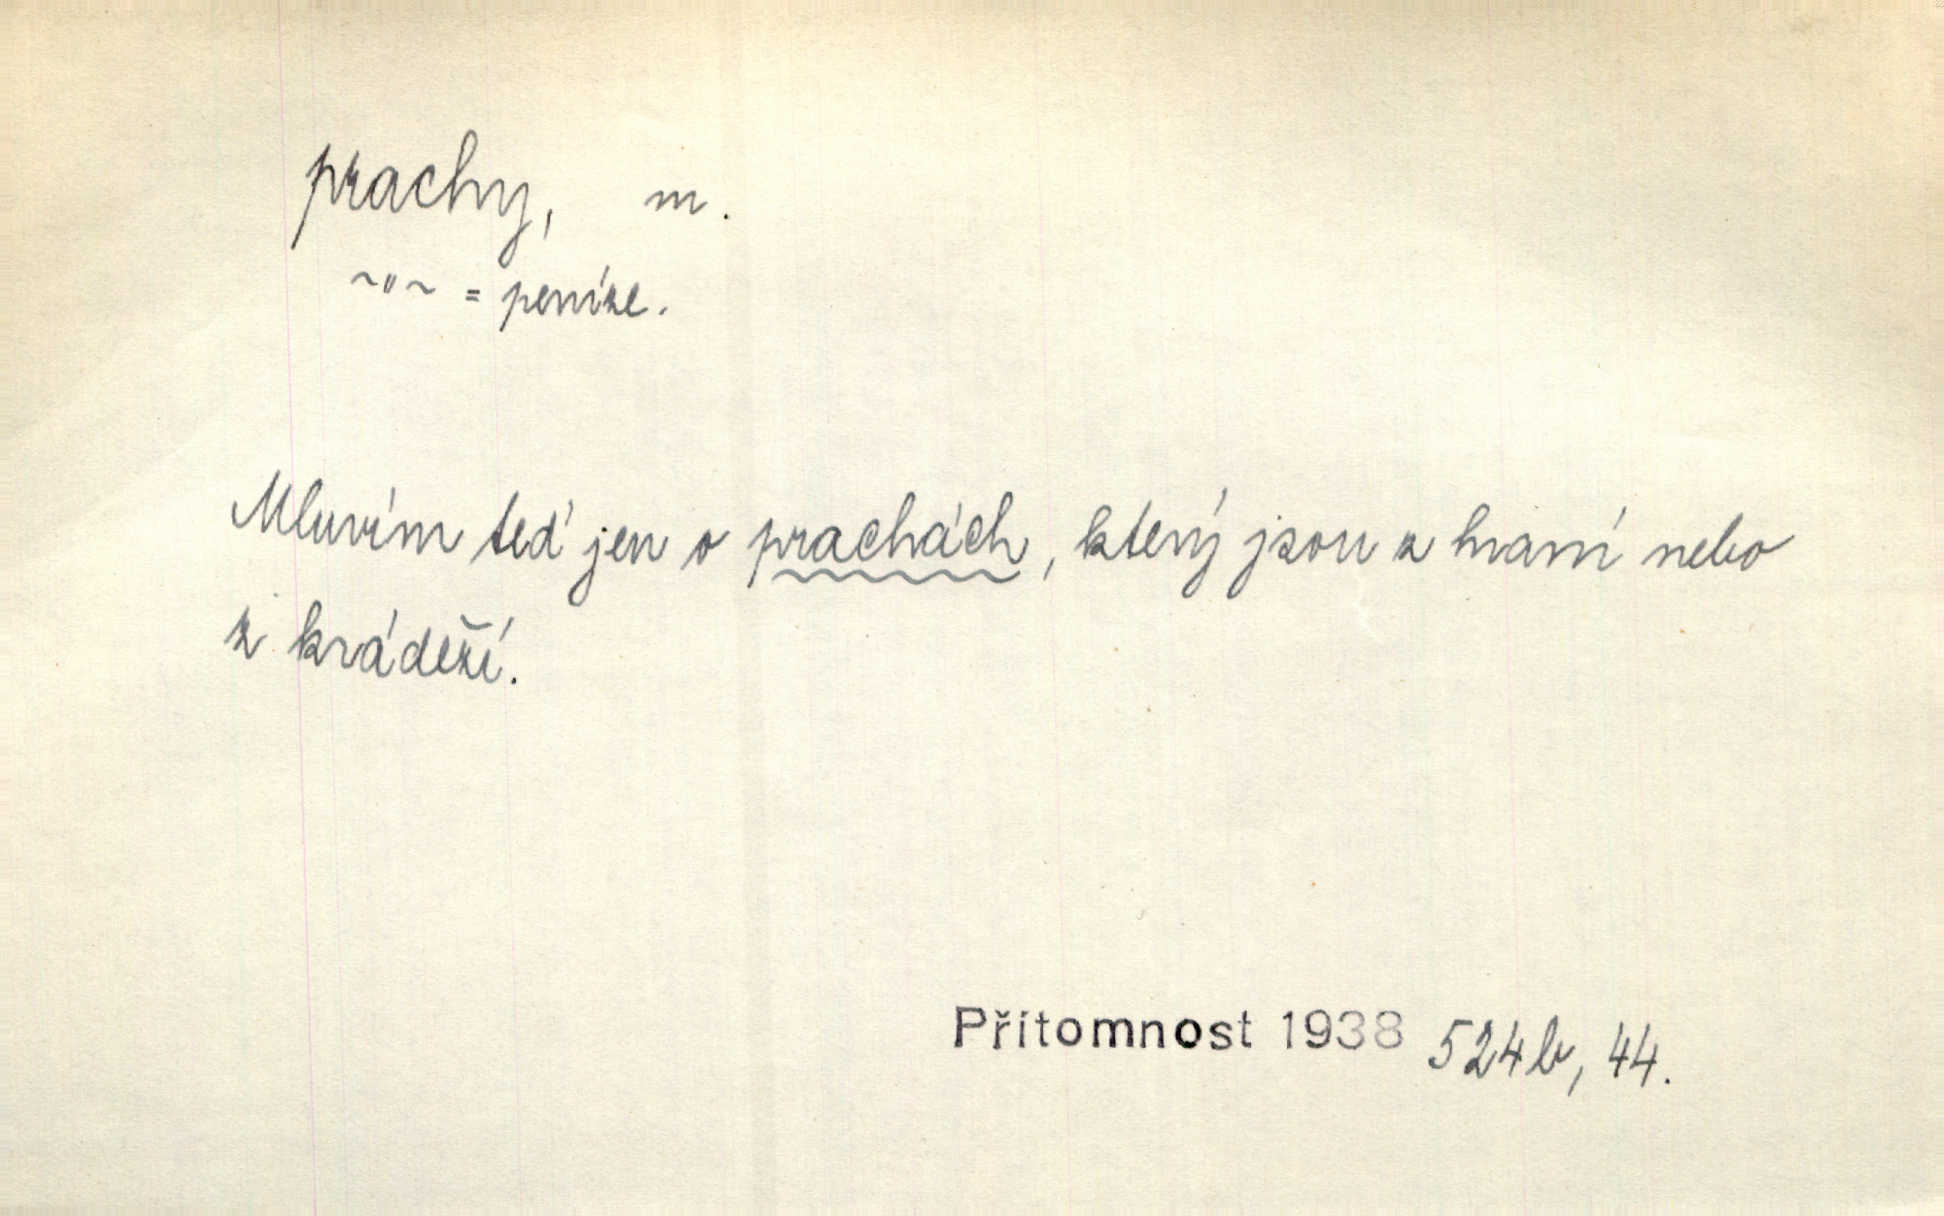 prachy, m.
~"~ = peníze.
Mluvím teď jen o prachách, který jsou z hraní nebo
z krádeží.
Přítomnost 1938 524b, 44.